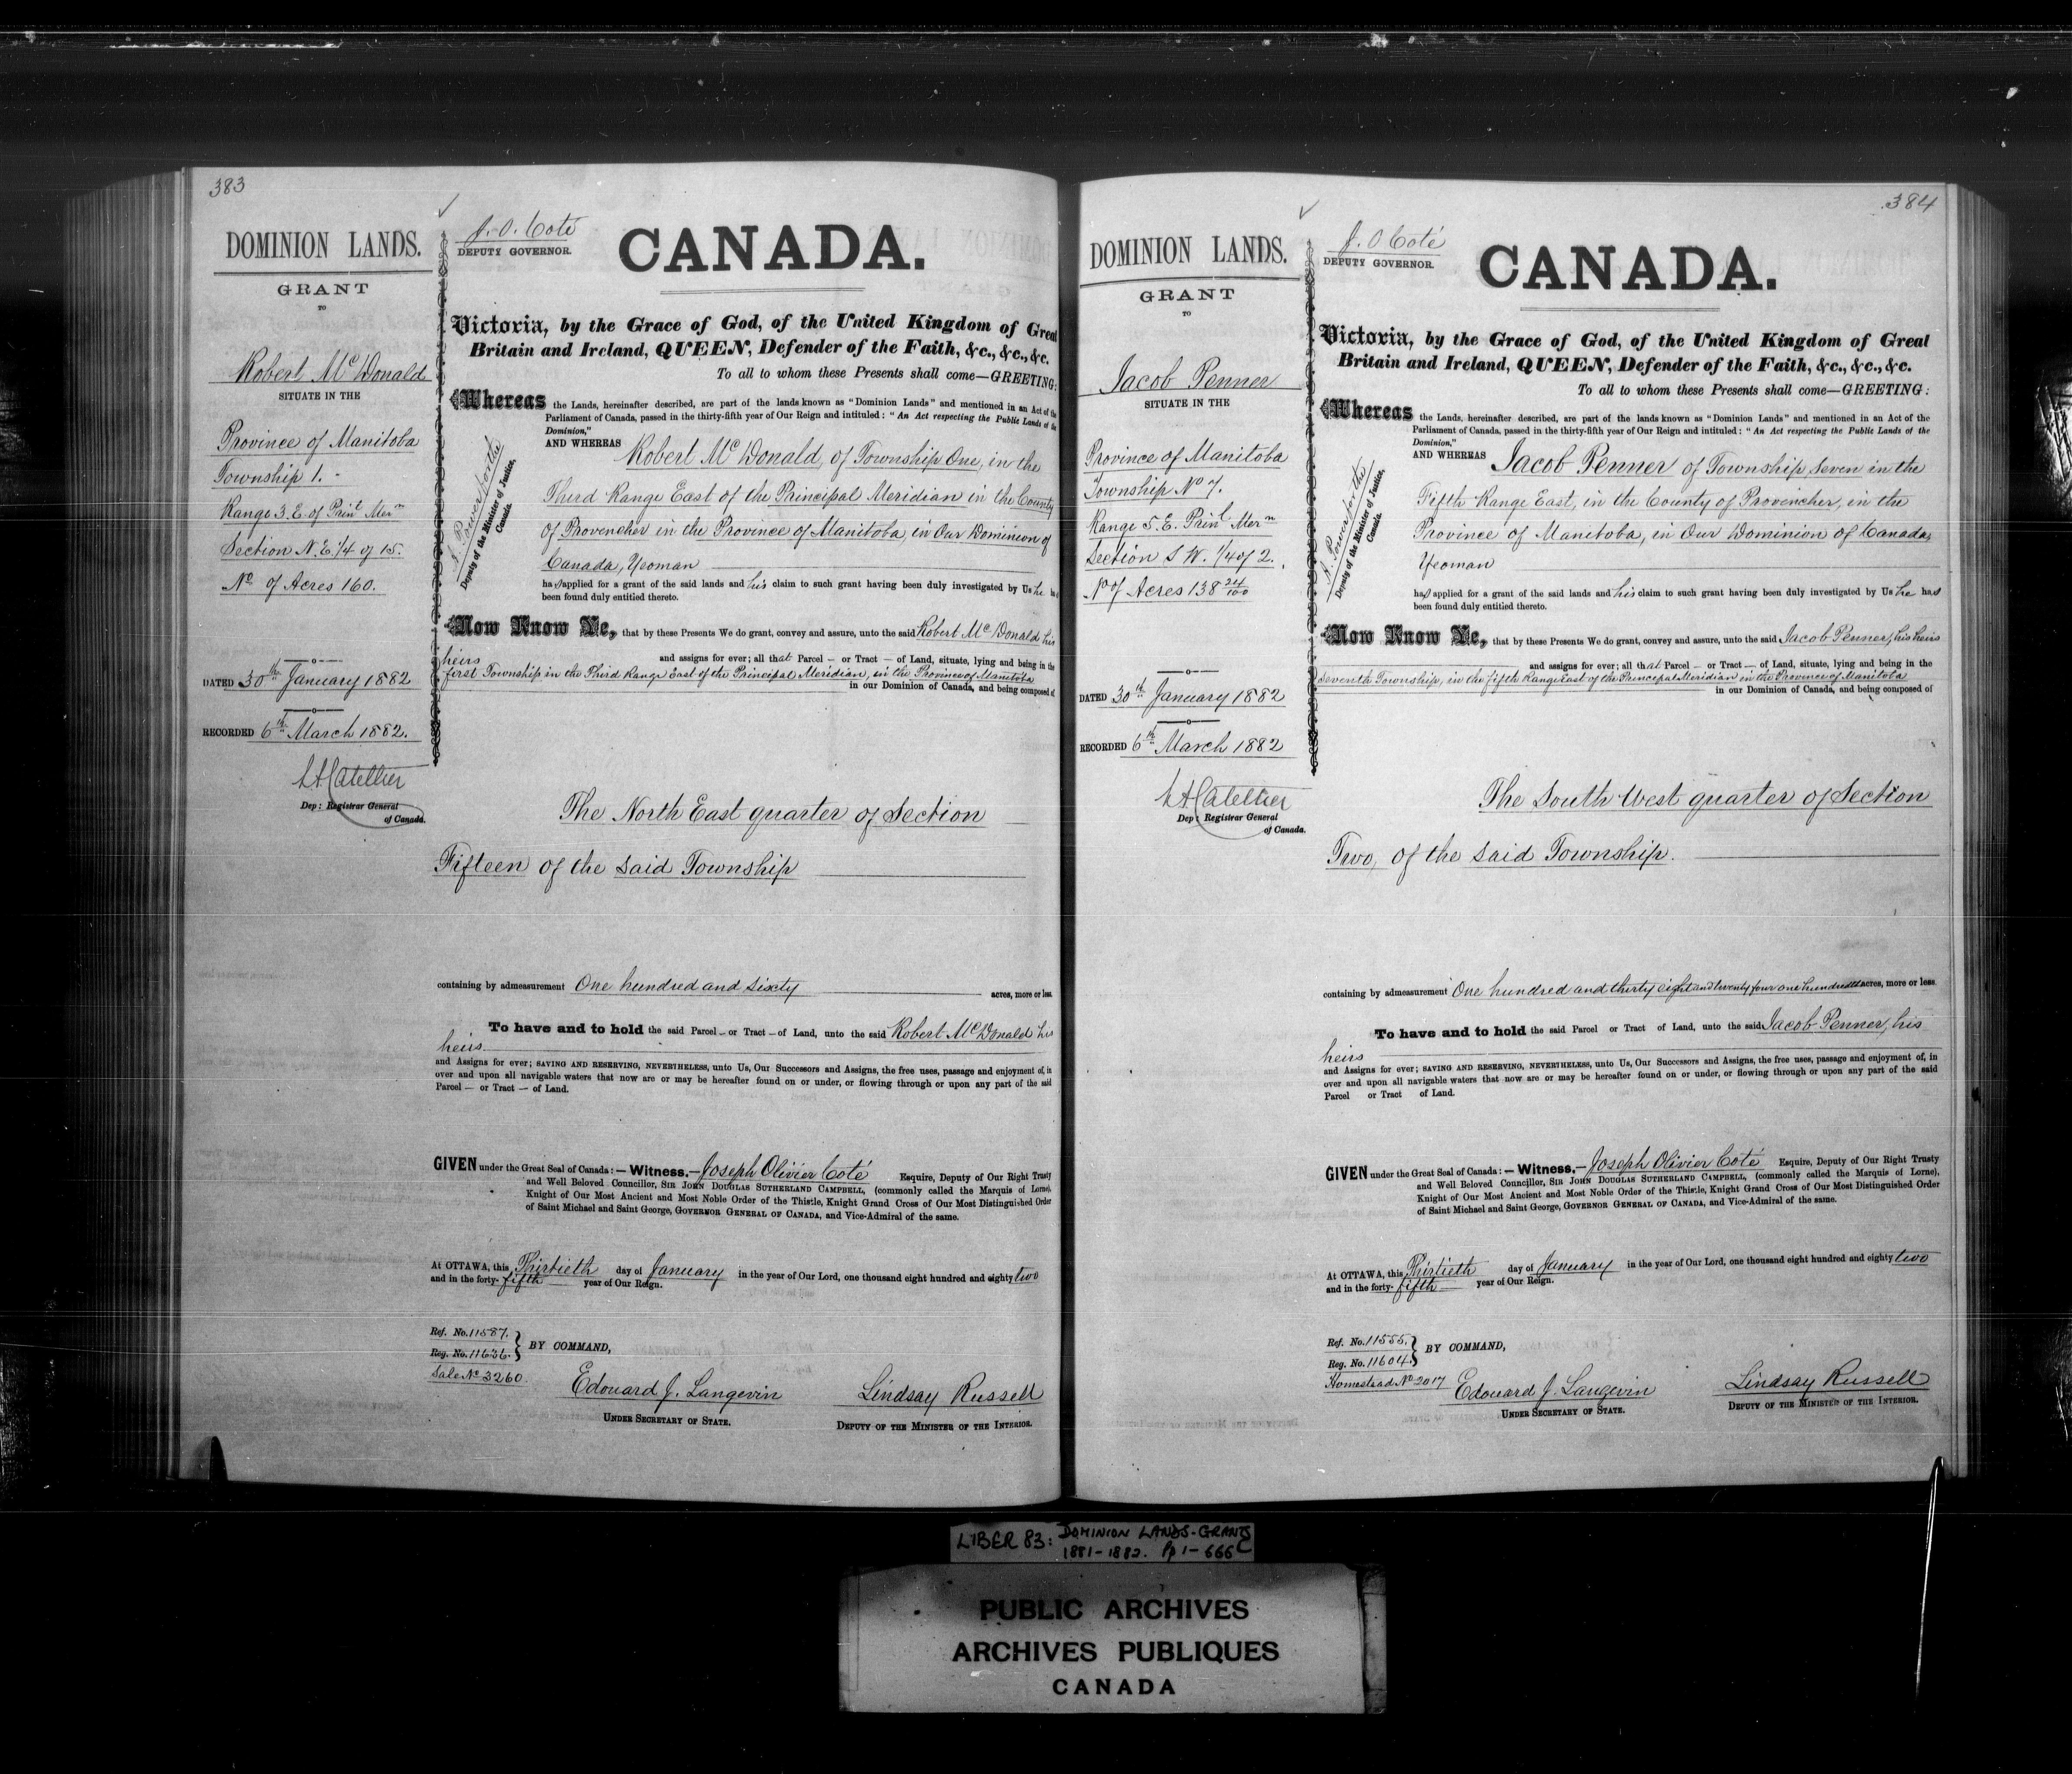 383
DOMINION LANDS.
GRANT
TO
Robert McDonald
SITUATE IN THE
Province of Manitoba
Township 1. -
Range 3. E. of Prinl Mern
Section N.E. 1/4 of 15.
No of Acres 160.
DATED 30th January 1882
RECORDED 6th March 1882.
Dep: Registrar General
of Canada.
J. O. Coté
DEPUTY GOVERNOR.
CANADA.
Victoria, by the Grace of God, of the United Kingdom of Great
Britain and Ireland, QUEEN, Defender of the Faith, &c., &c., &c.
To all to whom these Presents shall come—GREETING:
Whereas the Lands, hereinafter described, are part of the lands known as "Dominion Lands" and mentioned in an Act of the
Parliament of Canada, passed in the thirty-fifth year of Our Reign and intituled: "An Act respecting the Public Lands of the
Dominion,"
AND WHEREAS Robert McDonald, of Township One, in the
Third Range East of the Principal Meridian in the County
of Provencher in the Province of Manitoba, in Our Dominion of
Canada, Yeoman
A. Power for the
Deputy of the Minister of Justice,
Canada.
has applied for a grant of the said lands and his claim to such grant having been duly investigated by Us he has
been found duly entitled thereto.
Now Know Ye, that by these Presents We do grant, convey and assure, unto the said Robert McDonald his
heirs and assigns for ever; all that Parcel — or Tract — of Land, situate, lying and being in the
first Township in the Third Range East of the Principal Meridian, in the Province of Manitoba
in our Dominion of Canada, and being composed of
The North East quarter of Section
Fifteen of the said Township
containing by admeasurement One hundred and sixty acres, more or less
To have and to hold the said Parcel — or Tract — of Land, unto the said Robert McDonald his
heirs
and Assigns for ever; SAVING AND RESERVING, NEVERTHELESS, unto Us, Our Successors and Assigns, the free uses, passage and enjoyment of, in
over and upon all navigable waters that now are or may be hereafter found on or under, or flowing through or upon any part of the said
Parcel — or Tract — of Land.
GIVEN under the Great Seal of Canada: — Witness, — Joseph Olivier Coté Esquire, Deputy of Our Right Trusty
and Well Beloved Councillor, SIR JOHN DOUGLAS SUTHERLAND CAMPBELL, (commonly called the Marquis of Lorne),
Knight of Our Most Ancient and Most Noble Order of the Thistle, Knight Grand Cross of Our Most Distinguished Order
of Saint Michael and Saint George, GOVERNOR GENERAL OF CANADA, and Vice-Admiral of the same.
At OTTAWA, this Thirtieth day of January in the year of Our Lord, one thousand eight hundred and eighty two
and in the forty-fifth year of Our Reign.
Ref. No. 11587.
Reg. No. 11636. } BY COMMAND,
Sale No 3260.
Edouard J. Langevin
UNDER SECRETARY OF STATE.
Lindsay Russell
DEPUTY OF THE MINISTER OF THE INTERIOR.
384
DOMINION LANDS.
GRANT
TO
Jacob Penner
SITUATE IN THE
Province of Manitoba
Township No 7.
Range 5. E. Prinl Mern
Section S W. 1/4 of 2.
No of Acres 138 24/100
DATED 30th January 1882
RECORDED 6th March 1882
Dep: Registrar General
of Canada.
J. O Coté
DEPUTY GOVERNOR.
CANADA.
Victoria, by the Grace of God, of the United Kingdom of Great
Britain and Ireland, QUEEN, Defender of the Faith, &c., &c., &c.
To all to whom these Presents shall come—GREETING:
Whereas the Lands, hereinafter described, are part of the lands known as "Dominion Lands" and mentioned in an Act of the
Parliament of Canada, passed in the thirty-fifth year of Our Reign and intituled: "An Act respecting the Public Lands of the
Dominion,"
AND WHEREAS Jacob Penner of Township Seven in the
Fifth Range East, in the County of Provencher, in the
Province of Manitoba, in Our Dominion of Canada,
Yeoman
A. Power for the
Deputy of the Minister of Justice,
Canada.
has applied for a grant of the said lands and his claim to such grant having been duly investigated by Us he has
been found duly entitled thereto.
Now Know Ye, that by these Presents We do grant, convey and assure, unto the said Jacob Penner, his heirs
and assigns for ever; all that Parcel — or Tract — of Land, situate, lying and being in the
Seventh Township, in the fifth Range East of the Principal Meridian in the Province of Manitoba
in our Dominion of Canada, and being composed of
The South West quarter of Section
Two, of the said Township.
containing by admeasurement One hundred and thirty eight and twenty four one hundredths acres, more or less
To have and to hold the said Parcel or Tract of Land, unto the said Jacob Penner, his
heirs
and Assigns for ever; SAVING AND RESERVING, NEVERTHELESS, unto Us, Our Successors and Assigns, the free uses, passage and enjoyment of, in
over and upon all navigable waters that now are or may be hereafter found on or under, or flowing through or upon any part of the said
Parcel or Tract of Land.
GIVEN under the Great Seal of Canada: — Witness, — Joseph Olivier Coté Esquire, Deputy of Our Right Trusty
and Well Beloved Councillor, SIR JOHN DOUGLAS SUTHERLAND CAMPBELL, (commonly called the Marquis of Lorne),
Knight of Our Most Ancient and Most Noble Order of the Thistle, Knight Grand Cross of Our Most Distinguished Order
of Saint Michael and Saint George, GOVERNOR GENERAL OF CANADA, and Vice-Admiral of the same.
At OTTAWA, this Thirtieth day of January in the year of Our Lord, one thousand eight hundred and eighty two
and in the forty-fifth year of Our Reign.
Ref. No. 11555.
Reg. No. 11604. } BY COMMAND,
Homestead No 2017
Edouard J. Langevin
UNDER SECRETARY OF STATE.
Lindsay Russell
DEPUTY OF THE MINISTER OF THE INTERIOR.
LIBER 83: DOMINION LANDS-GRANTS
1881-1882. Pp 1-666
PUBLIC ARCHIVES
ARCHIVES PUBLIQUES
CANADA